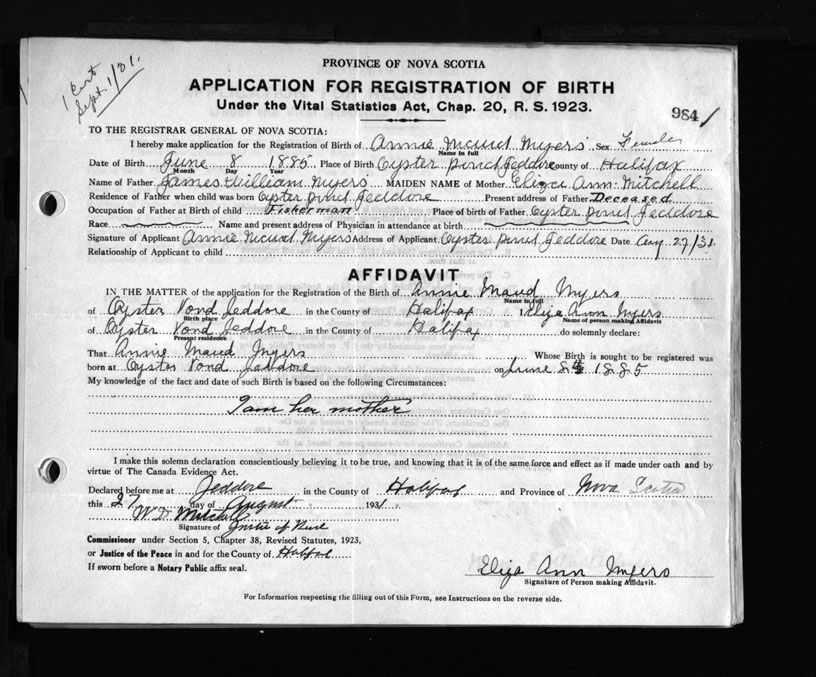 1 Cert
Sept. 1/31.
PROVINCE OF NOVA SCOTIA
APPLICATION FOR REGISTRATION OF BIRTH
Under the Vital Statistics Act, Chap. 20, R. S. 1923.
984
TO THE REGISTRAR GENERAL OF NOVA SCOTIA:
I hereby make application for the Registration of Birth of Annie Maud Myers Sex Female
Name in full
Date of Birth June 8 1885 Place of Birth Oyster Pond Jeddore County of Halifax
Month Day Year
Name of Father James William Myers MAIDEN NAME of Mother Eliza Ann Mitchell
Residence of Father when child was born Oyster Pond Jeddore Present address of Father Deceased
Occupation of Father at Birth of child Fisherman Place of birth of Father Oyster Pond Jeddore
Race Name and present address of Physician in attendance at birth
Signature of Applicant Annie Maud Myers Address of Applicant Oyster Pond Jeddore Date Aug 27/31
Relationship of Applicant to child
AFFIDAVIT
IN THE MATTER of the application for the Registration of the Birth of Annie Maud Myers
Name in full
of Oyster Pond Jeddore in the County of Halifax I, Eliza Ann Myers
Birth place Name of person making Affidavit
of Oyster Pond Jeddore in the County of Halifax do solemnly declare:
Present residence
That Annie Maud Myers Whose Birth is sought to be registered was
born at Oyster Pond Jeddore on June 8th 1885
My knowledge of the fact and date of such Birth is based on the following Circumstances:
I am her mother
I make this solemn declaration conscientiously believing it to be true, and knowing that it is of the same force and effect as if made under oath and by
virtue of The Canada Evidence Act.
Declared before me at Jeddore in the County of Halifax and Province of Nova Scotia
this 27 day of August 1931
W. D. Mitchell
Signature of Justice of Peace
Commissioner under Section 5, Chapter 38, Revised Statutes, 1923,
or Justice of the Peace in and for the County of Halifax
If sworn before a Notary Public affix seal.
Eliza Ann Myers
Signature of Person making Affidavit.
For Information respecting the filling out of this Form, see Instructions on the reverse side.